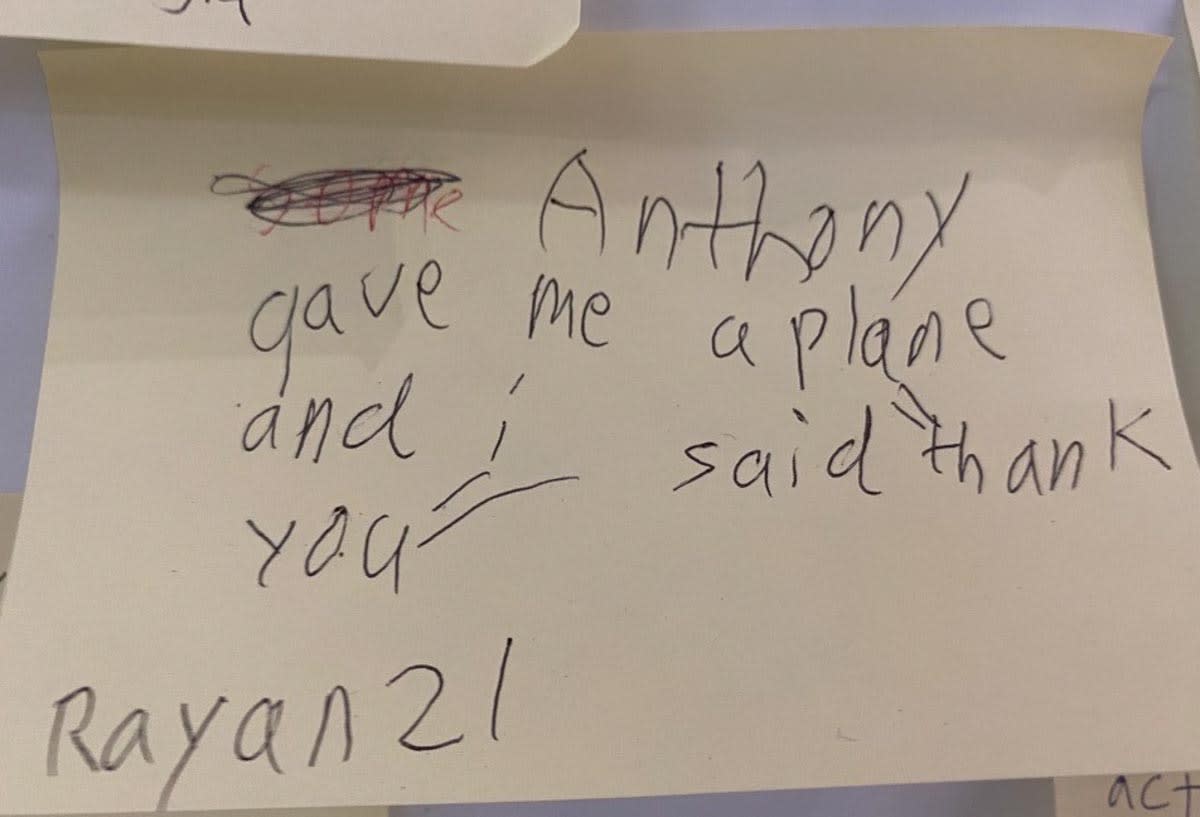 Anthony
gave me a plane
and i said "thank
you"
Rayan 21
act